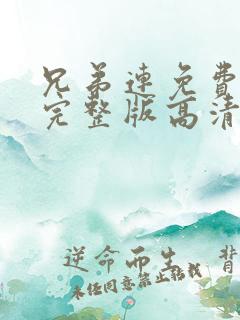 兄弟连免费
完整版高清
逆命而生
未经同意禁止转载